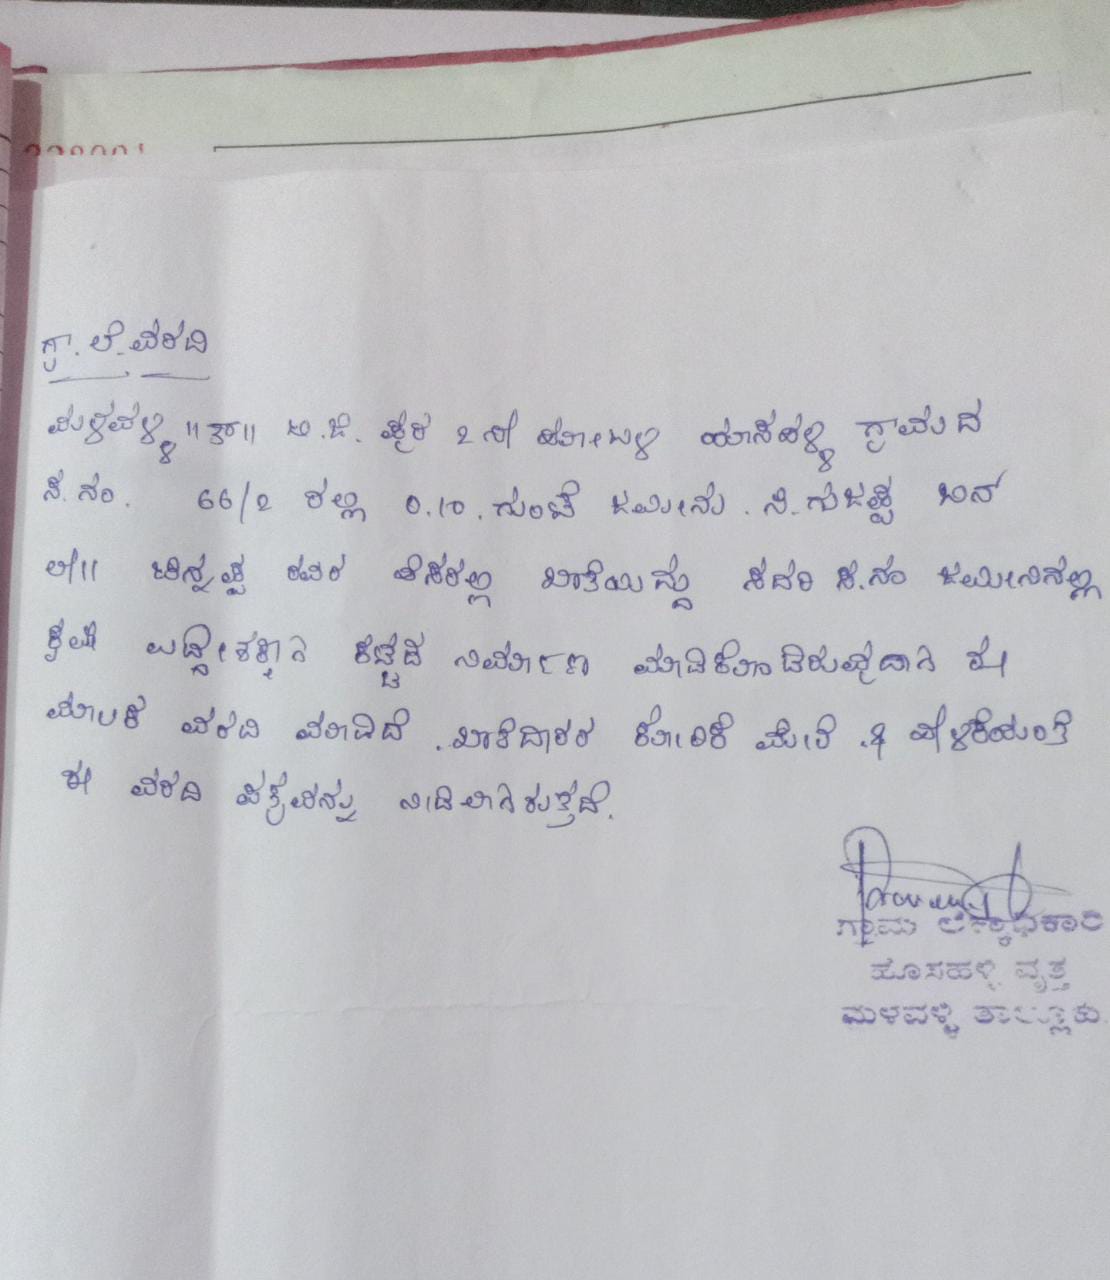 ಗ್ರಾ. ಲೆ. ವರದಿ
ಮಳವಳ್ಳಿ ||ತಾ|| ಬಿ.ಜಿ. ಪುರ 2 ನೇ ಹೋಬಳಿ ಗ್ರಾಮದ
ಸ.ನಂ. 66/2 ರಲ್ಲಿ 0.10. ಗುಂಟೆ ಜಮೀನು. ಬಿನ್
ಲೇ|| ಚಿನ್ನಪ್ಪ ರವರ ಹೆಸರಲ್ಲಿ ಖಾತೆಯಿದ್ದು ಸದರಿ ಸ.ನಂ ಜಮೀನಿನಲ್ಲಿ
ಕೃಷಿ ಉದ್ದೇಶಕ್ಕಾಗಿ ಕಟ್ಟಡ ನಿರ್ಮಾಣ ಮಾಡಿಕೊಂಡಿರುವುದಾಗಿ ಈ
ಮೂಲಕ ವರದಿ ಖಾತೆದಾರರ ಕೋರಿಕೆ ಮೇರೆ ಹೇಳಿಕೆಯಂತೆ
ಈ ವರದಿ ಪತ್ರವನ್ನು ನೀಡಲಾಗಿರುತ್ತದೆ.
ಗ್ರಾಮ ಲೆಕ್ಕಾಧಿಕಾರಿ
ಹೊಸಹಳ್ಳಿ ವೃತ್ತ
ಮಳವಳ್ಳಿ ತಾಲ್ಲೂಕು.